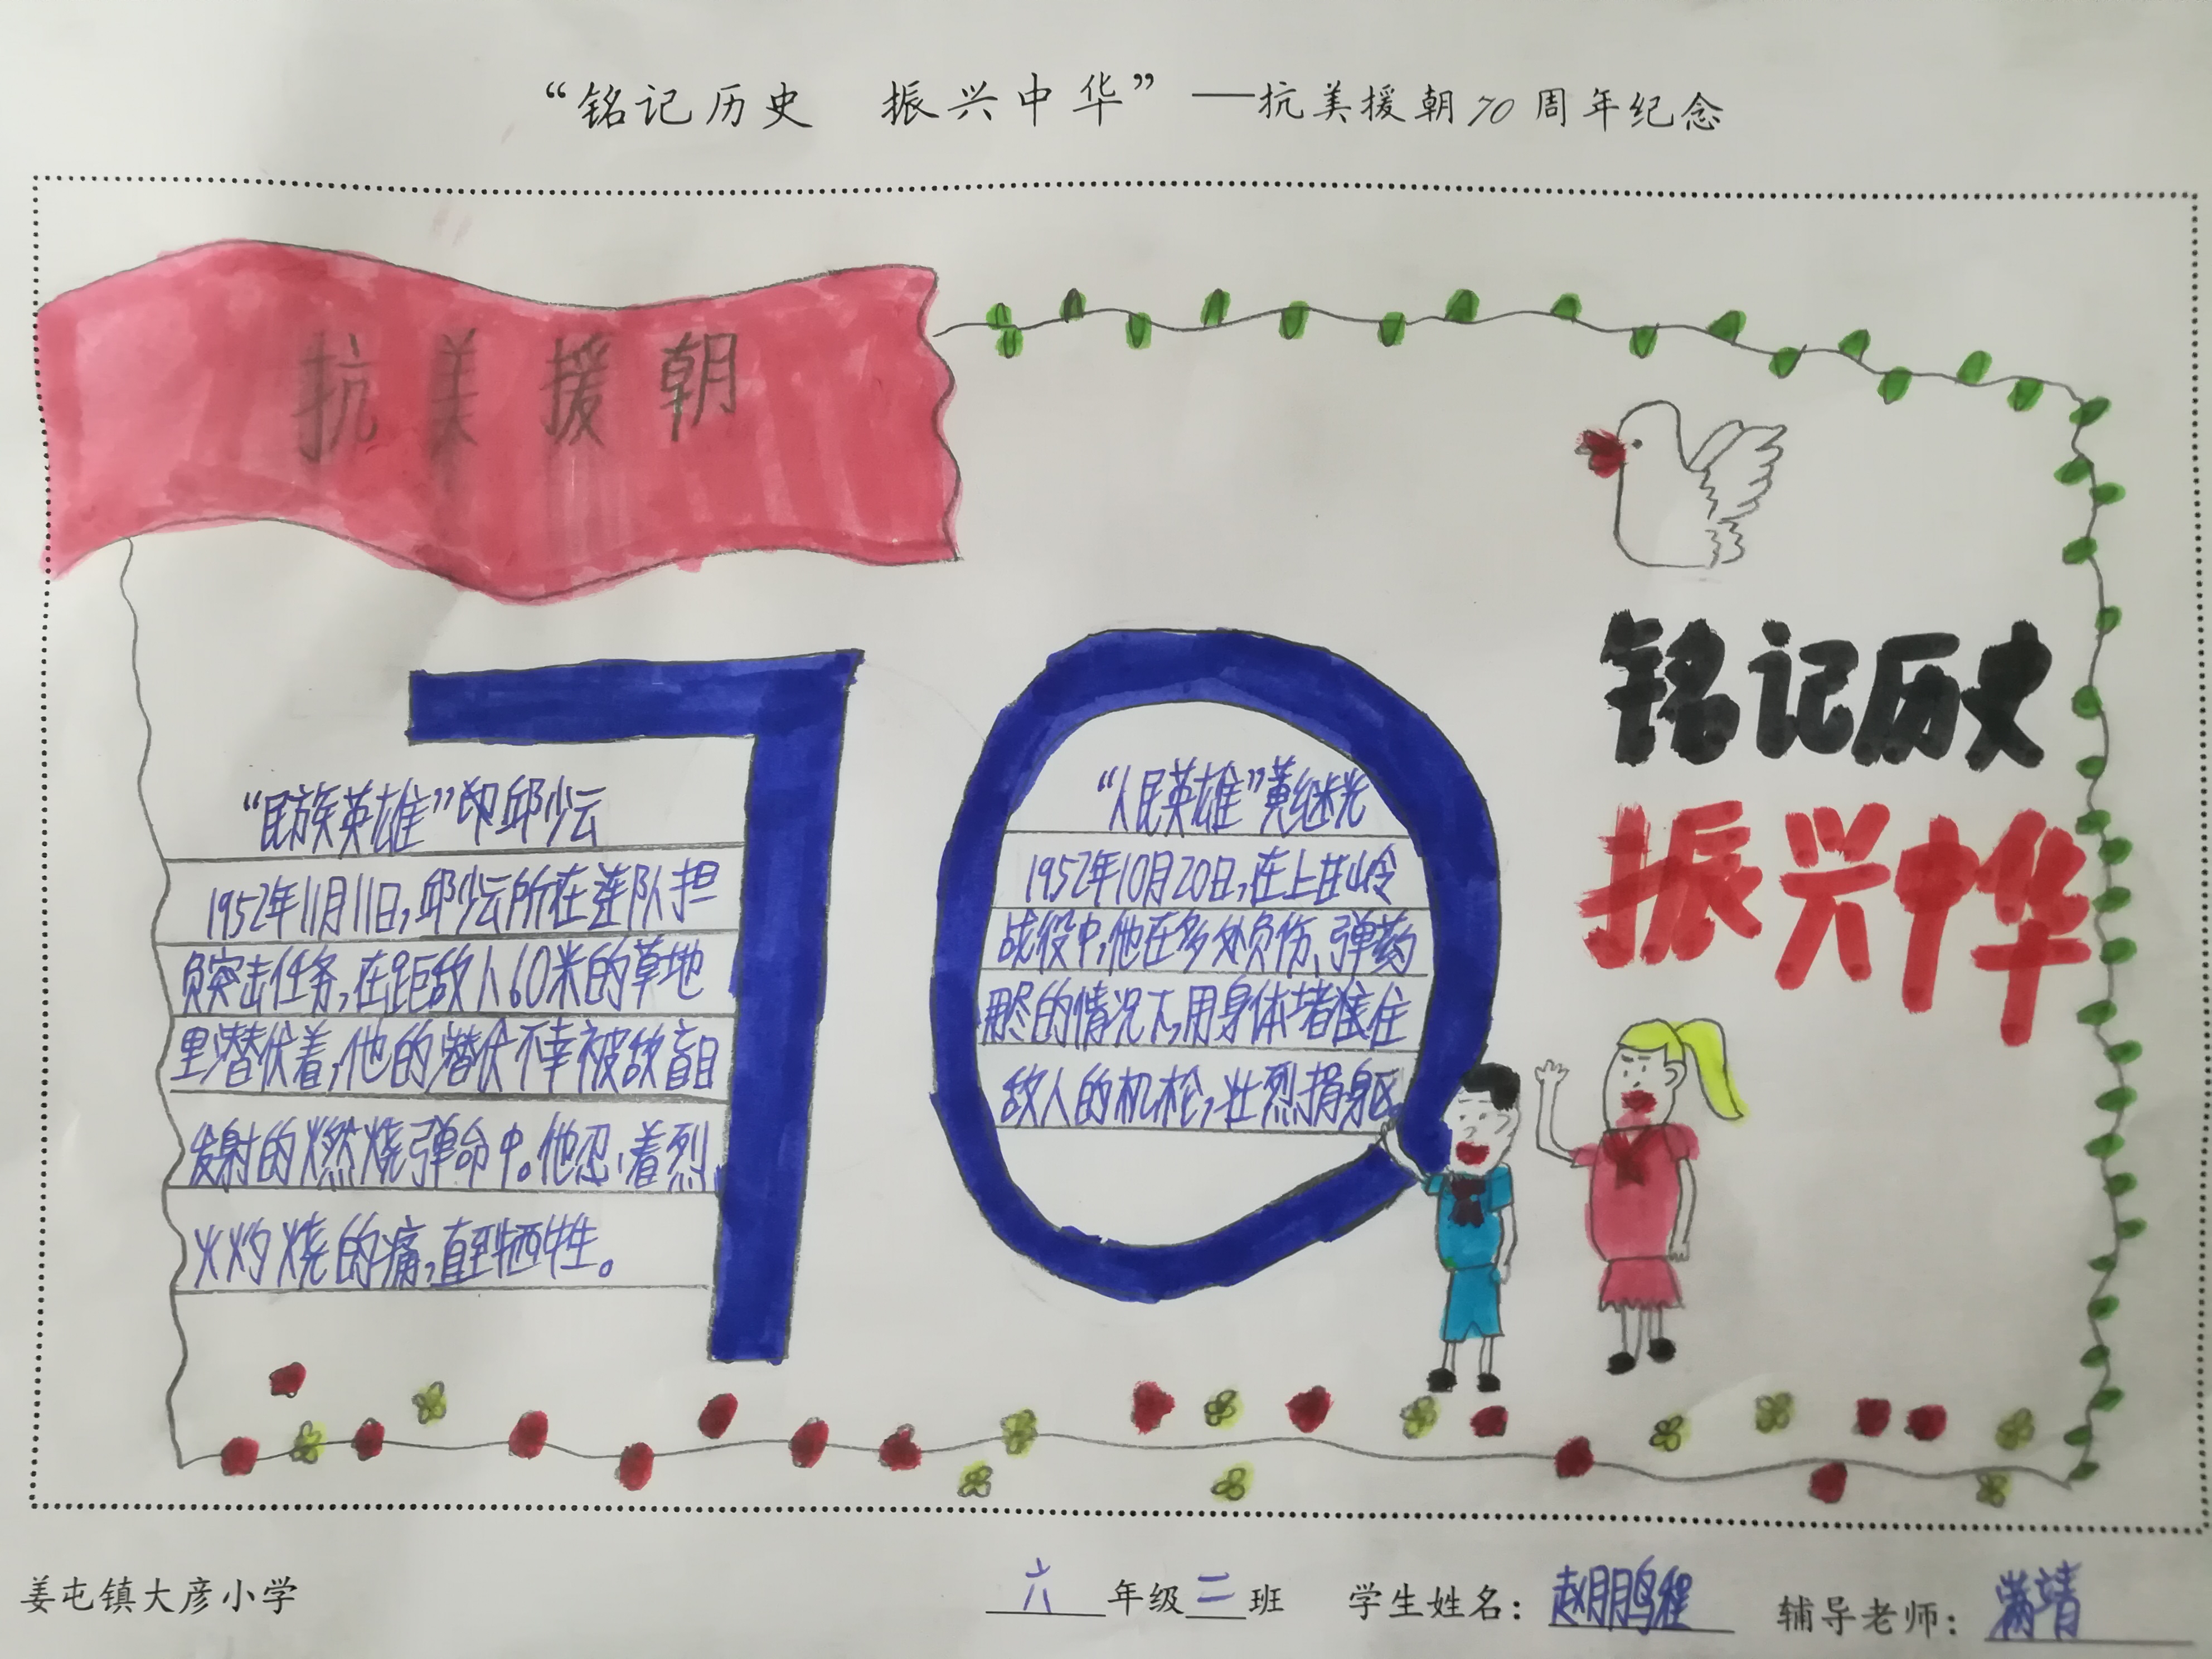 “铭记历史 振兴中华”——抗美援朝70周年纪念
抗美援朝
铭记历史
振兴中华
“民族英雄” 邱少云
1952年11月11日,邱少云所在连队担
负突击任务,在距敌人60米的草地
里潜伏着,他的潜伏不幸被敌盲目
发射的燃烧弹命中。他忍着烈
火灼烧的痛,直到牺牲。
“人民英雄”黄继光
1952年10月20日,在上甘岭
战役中,他在多处负伤、弹药
用尽的情况下,用身体堵住
敌人的机枪,壮烈捐躯
姜屯镇大彦小学
六年级二班 学生姓名：赵鹏程 辅导老师：满靖